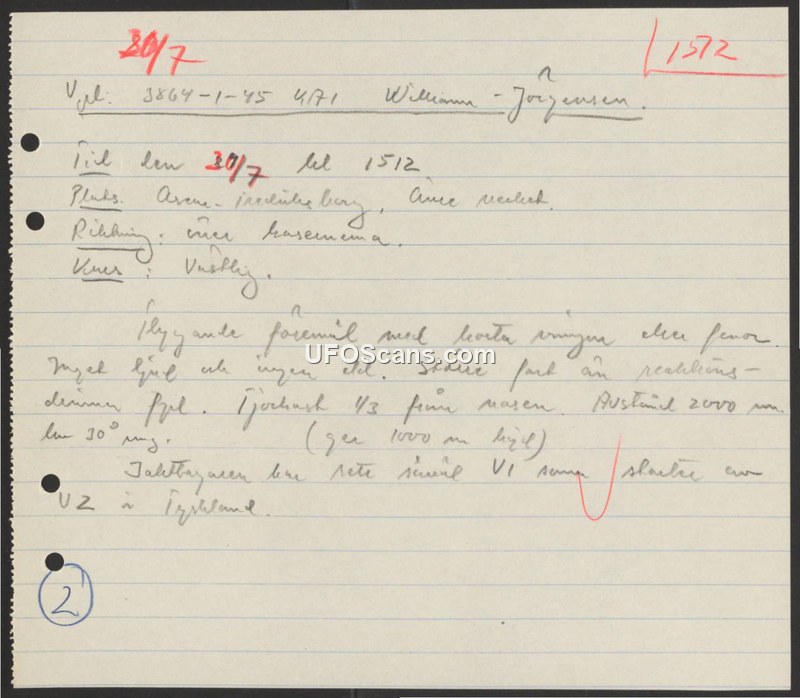 30/7
1512
Vpl. 3864-1-45 4/71 William-Jörgensen.
Tid den 30/7 kl 1512
Plats.
Riktning: över kasernerna.
Kurs: Västlig.
Flygande föremål med korta vingar eller fenor.
UFOScans.com
Inget ljud och ingen eld. Större fart än reaktions-
drivna fpl. Tjockast 1/3 från nosen. Avstånd 2000 m.
30° (ger 1000 m höjd)
Iakttagaren har sett såväl V1 som starter av
V2 i Tyskland.
2